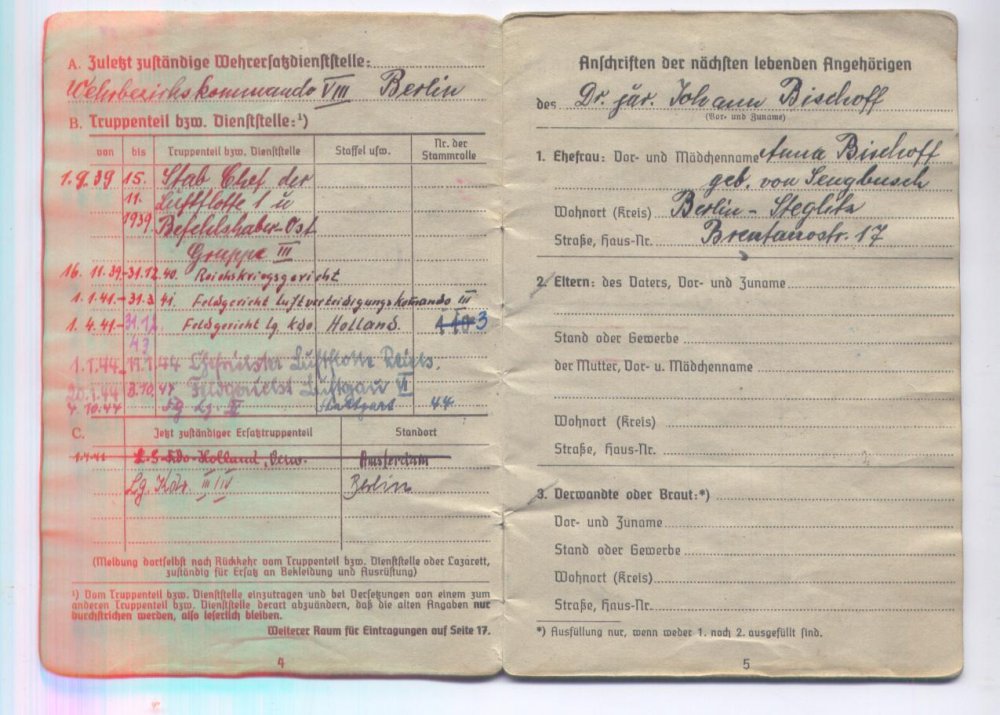 A. Zuletzt zuständige Wehrersatzdienststelle:
Wehrbezirkskommando VIII Berlin
B. Truppenteil bzw. Dienststelle:¹)
von bis Truppenteil bzw. Dienststelle Staffel usw. Nr. der Stammrolle
1.9.39 15. Stab Chef der
11. Luftflotte 1 u
1939 Befehlshaber Ost
Gruppe III
16.11.39-31.12.40. Reichskriegsgericht
1.1.41.-31.3.41. Feldgericht Luftverteidigungskomando III
1.4.41-31.12. Feldgericht Lg. Kdo. Holland. 3
43
1.1.44 Luftflotte Reich.
Feldgericht Luftgau VI
4.10.44 44
C. Jetzt zuständiger Ersatztruppenteil Standort
1.4.41 Holland, Amsterdam
Lg. Kdo. III/IV Berlin
(Meldung dortselbst nach Rückkehr vom Truppenteil bzw. Dienststelle oder Lazarett,
zuständig für Ersatz an Bekleidung und Ausrüstung)
¹) Vom Truppenteil bzw. Dienststelle einzutragen und bei Versetzungen von einem zum
anderen Truppenteil bzw. Dienststelle derart abzuändern, daß die alten Angaben nur
durchstrichen werden, also leserlich bleiben.
Weiterer Raum für Eintragungen auf Seite 17.
4
Anschriften der nächsten lebenden Angehörigen
des Dr. jur. Johann Bischoff
(Vor- und Zuname)
1. Ehefrau: Vor- und Mädchenname Anna Bischoff
geb. von Sengbusch
Wohnort (Kreis) Berlin-Steglitz
Straße, Haus-Nr. Brentanostr. 17
2. Eltern: des Vaters, Vor- und Zuname
Stand oder Gewerbe
der Mutter, Vor- u. Mädchenname
Wohnort (Kreis)
Straße, Haus-Nr.
3. Verwandte oder Braut:*)
Vor- und Zuname
Stand oder Gewerbe
Wohnort (Kreis)
Straße, Haus-Nr.
*) Ausfüllung nur, wenn weder 1. noch 2. ausgefüllt sind.
5